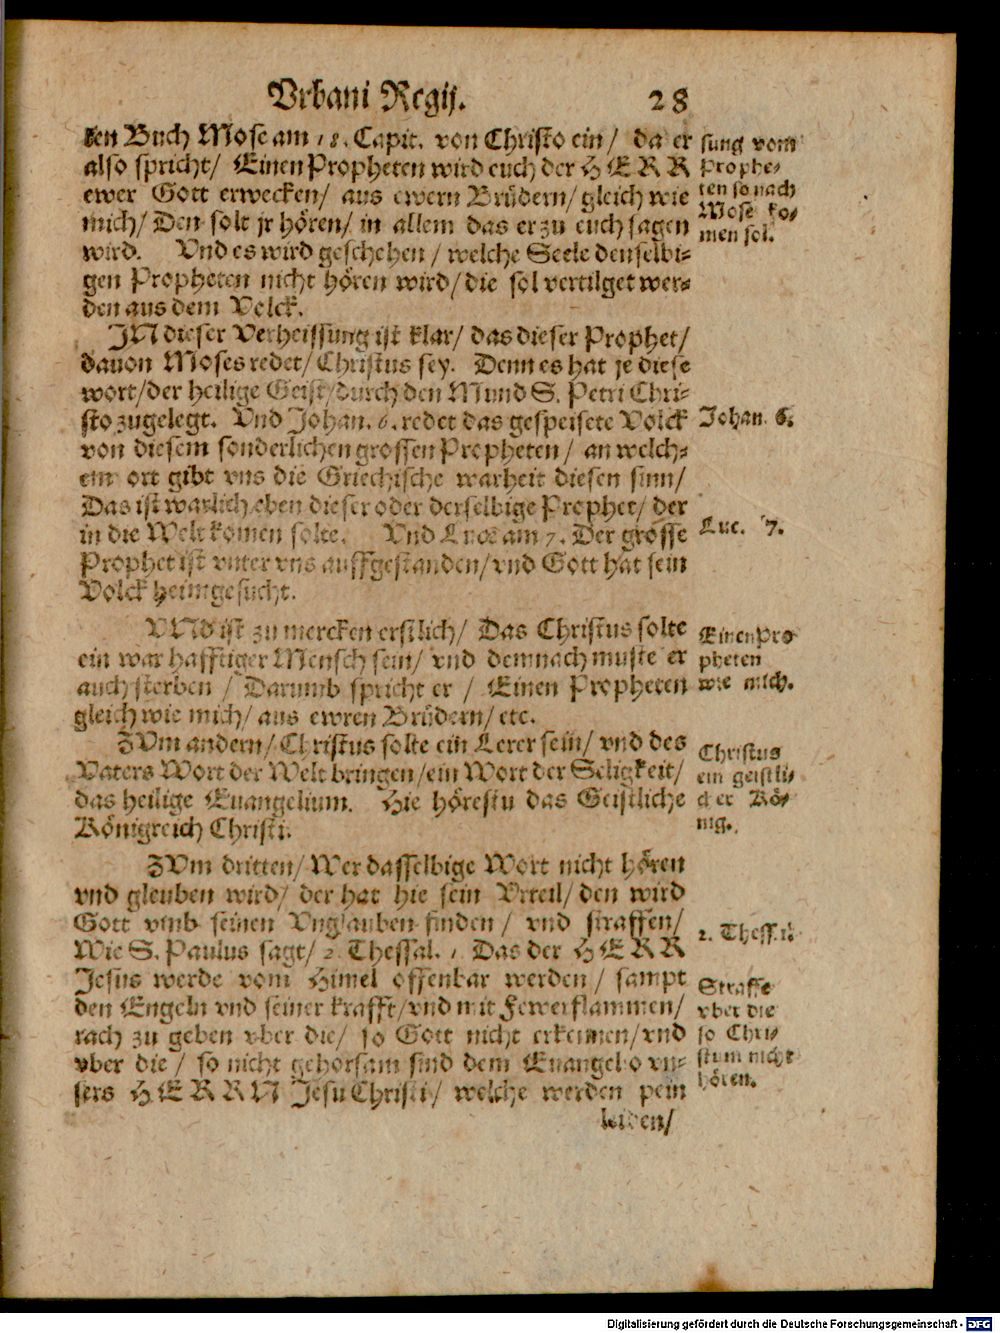 Vrbani Regij. 28
ten Buch Mose am 18. Capit. von Christo ein / da er
also spricht / Einen Propheten wird euch der HERR
ewer Gott erwecken / aus ewern Brüdern / gleich wie
mich / Den solt jr hören / in allem das er zu euch sagen
wird. Vnd es wird geschehen / welche Seele denselbi-
gen Propheten nicht hören wird / die sol vertilget wer-
den aus dem Volck.
IN dieser Verheissung ist klar / das dieser Prophet /
dauon Moses redet / Christus sey. Denn es hat je diese
wort / der heilige Geist / durch den Mund S. Petri Chri-
sto zugelegt. Vnd Johan. 6. redet das gespeisete Volck
von diesem sonderlichen grossen Propheten / an welch-
em ort gibt vns die Griechische warheit diesen sinn /
Das ist warlich eben dieser oder derselbige Prophet / der
in die Welt komen solte. Vnd Luce am 7. Der grosse
Prophet ist vnter vns auffgestanden / vnd Gott hat sein
Volck heimgesucht.
VNd ist zu mercken erstlich / Das Christus solte
ein warhafftiger Mensch sein / vnd demnach muste er
auch sterben / Darumb spricht er / Einen Propheten
gleich wie mich / aus ewren Brüdern / etc.
ZVm andern / Christus solte ein Lerer sein / vnd des
Vaters Wort der Welt bringen / ein Wort der Seligkeit /
das heilige Euangelium. Hie hörestu das Geistliche
Königreich Christi.
ZVm dritten / Wer dasselbige Wort nicht hören
vnd gleuben wird / der hat hie sein Vrteil / den wird
Gott vmb seinen Vnglauben finden / vnd straffen /
Wie S. Paulus sagt / 2. Thessal. 1. Das der HERR
Jesus werde vom Himel offenbar werden / sampt
den Engeln vnd seiner krafft / vnd mit Fewerflammen /
rach zu geben vber die / so Gott nicht erkennen / vnd
vber die / so nicht gehorsam sind dem Euangelio vn-
sers HERRN Jesu Christi / welche werden pein
leiden /
sung vom
Prophe-
ten so nach
Mose ko-
men sol.
Johan. 6.
Luc. 7.
Einen Pro
pheten
wie mich.
Christus
ein geistli-
cher Kö-
nig.
2. Thess. 1.
Straffe
vber die
so Chri-
stum nicht
hören.
Digitalisierung gefördert durch die Deutsche Forschungsgemeinschaft - DFG